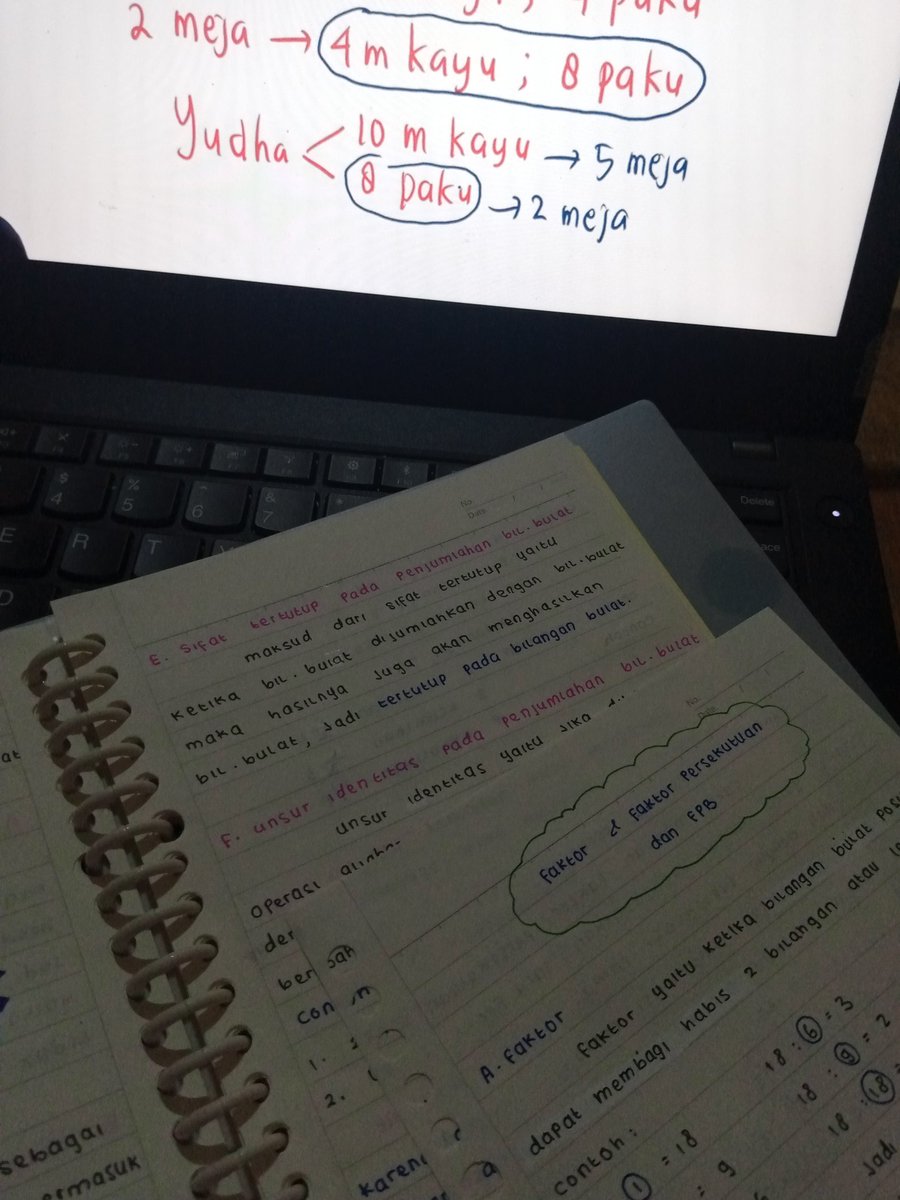 4 paku
2 meja → 4 m kayu ; 8 paku
Yudha < 10 m kayu → 5 meja
8 paku → 2 meja
$
4
%
5
^
6
&
7
Delete
E
R
T
D
No.
Date
E. Sifat tertutup pada penjumlahan bil.bulat
maksud dari sifat tertutup yaitu
ketika bil.bulat dijumlahkan dengan bil.bulat
maka hasilnya juga akan menghasilkan
bil.bulat, jadi tertutup pada bilangan bulat.
F. unsur identitas pada penjumlahan bil.bulat
unsur identitas yaitu jika
operasi
der
ber
con
1.
2.
karen
at
sebagai
ermasuk
No.
Date
Faktor & Faktor Persekutuan
dan FPB
A. Faktor
Faktor yaitu ketika bilangan bulat pos
dapat membagi habis 2 bilangan atau le
contoh :
1 = 18
= 9
18 : 6 = 3
18 : 9 = 2
18 : 18 =
Jadi